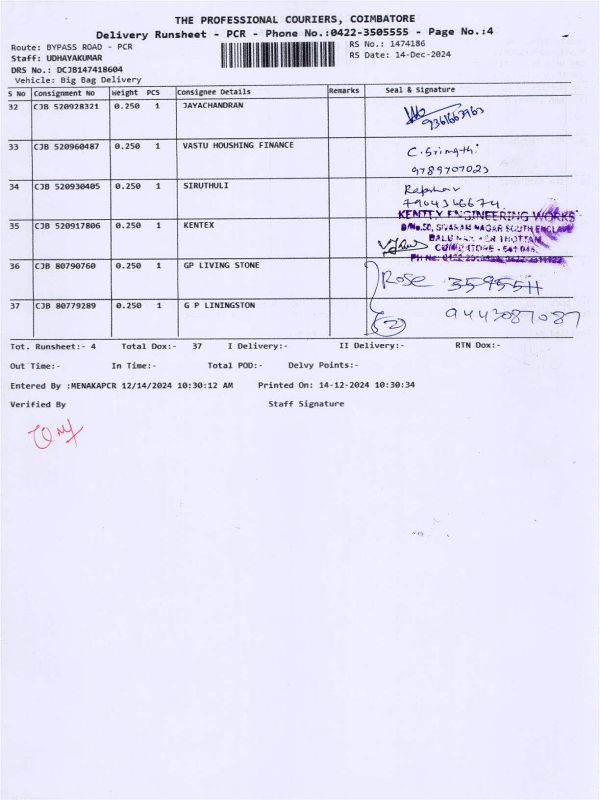 THE PROFESSIONAL COURIERS, COIMBATORE
Delivery Runsheet - PCR - Phone No.:0422-3505555 - Page No.:4
Route: BYPASS ROAD - PCR
RS No.: 1474186
Staff: UDHAYAKUMAR
RS Date: 14-Dec-2024
DRS No.: DCJB147418604
Vehicle: Big Bag Delivery
S No Consignment No Weight PCS Consignee Details Remarks Seal & Signature
32 CJB 520928321 0.250 1 JAYACHANDRAN
9361663963
33 CJB 520960487 0.250 1 VASTU HOUSHING FINANCE C.Srimathi
9789707023
34 CJB 520930405 0.250 1 SIRUTHULI
7904346674
KENTEX ENGINEERING WORKS
35 CJB 520917806 0.250 1 KENTEX
SIVARAM NAGAR SOUTH ENCLAVE
COIMBATORE - 641 045.
36 CJB 80790760 0.250 1 GP LIVING STONE Rose
37 CJB 80779289 0.250 1 G P LININGSTON 9443087087
(2)
Tot. Runsheet:- 4 Total Dox:- 37 I Delivery:- II Delivery:- RTN Dox:-
Out Time:- In Time:- Total POD:- Delvy Points:-
Entered By :MENAKAPCR 12/14/2024 10:30:12 AM Printed On: 14-12-2024 10:30:34
Verified By Staff Signature